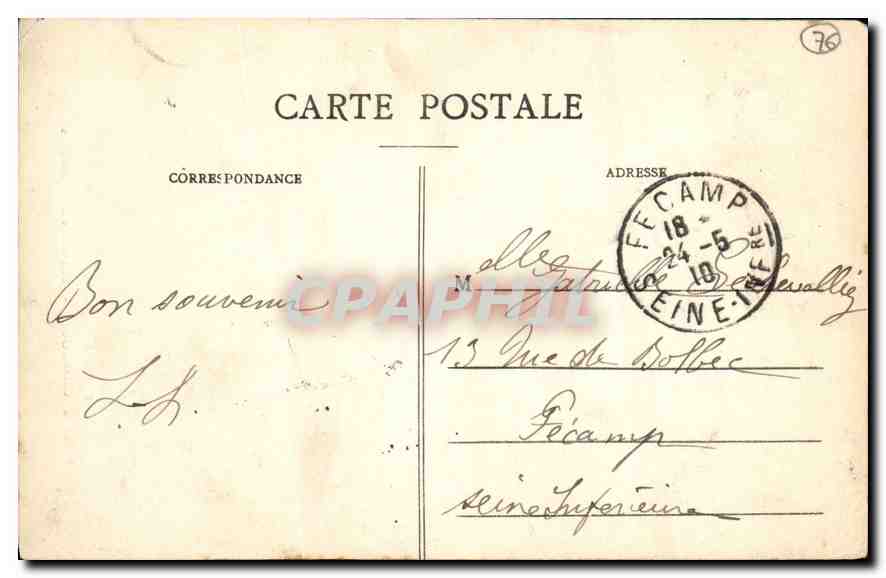 76
CARTE POSTALE
CORRESPONDANCE
ADRESSE
FECAMP
18
24 -5
10
SEINE-INFRE
Bon souvenir
L. L.
Melle Gabrielle
13 Rue de Bolbec
Fécamp
Seine Inférieure
CPAPHIL